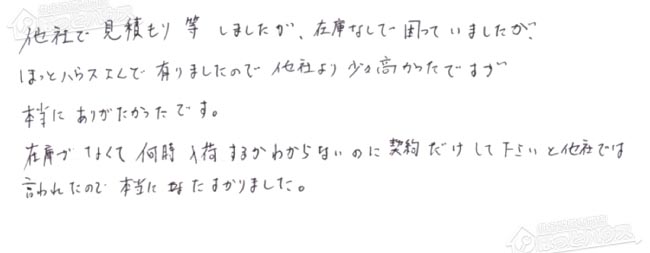 他社で見積もり等しましたが、在庫なしで困っていましたが、
ほっとハウスさんで有りましたので他社より少々高かったですが
本当にありがたかったです。
在庫がなくて何時入荷するかわからないのに契約だけして下さいと他社では
言われたので本当にたすかりました。
ほっとハウス